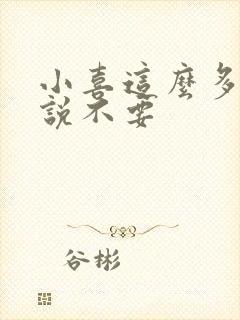 小喜這麼多
說不要
谷彬